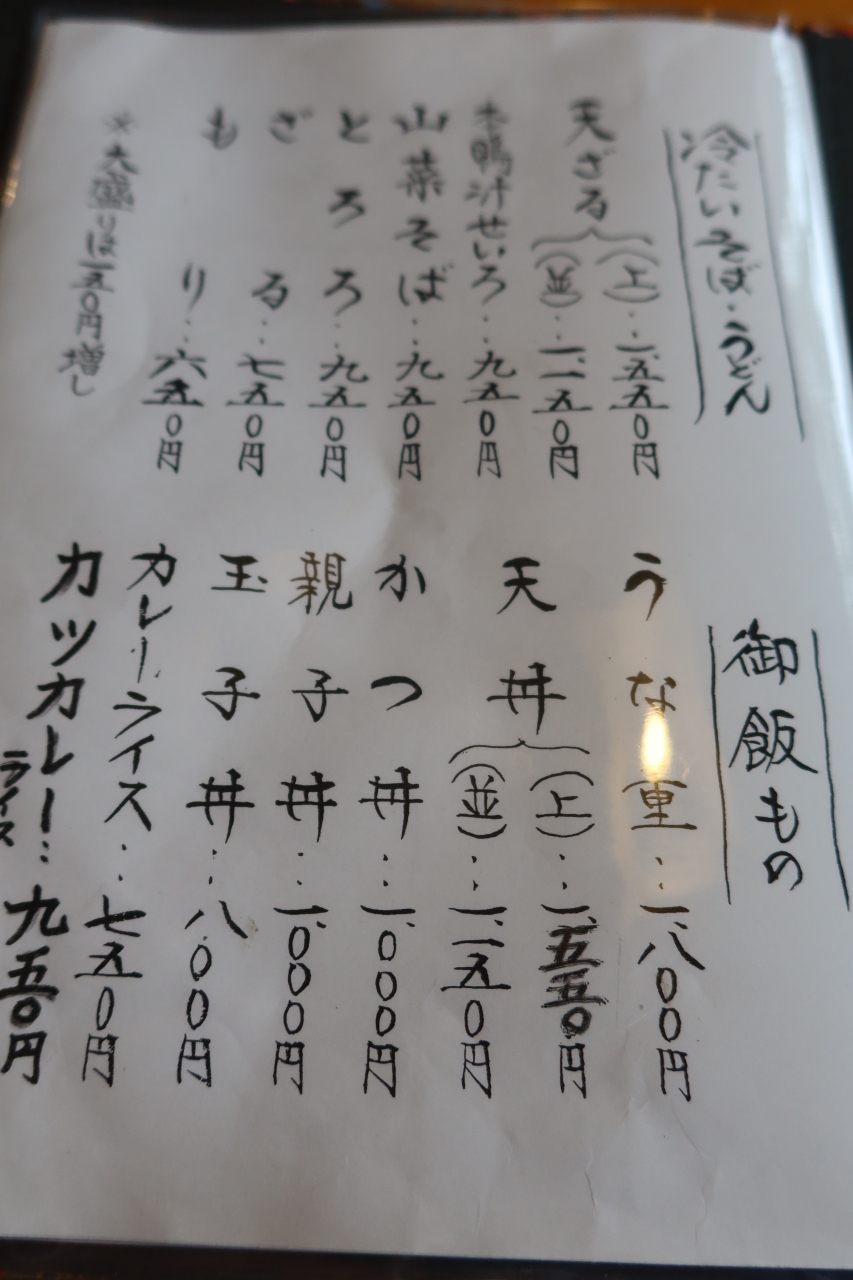 冷たいそば・うどん
天ざる
(上)‥一、五五〇円
(並)‥一、一五〇円
本鴨汁せいろ‥九五〇円
山菜そば‥九五〇円
とろろ‥九五〇円
ざる‥七五〇円
もり‥六五〇円
※大盛りは一五〇円増し
御飯もの
うな重‥一、八〇〇円
天丼
(上)‥一、五五〇円
(並)‥一、一五〇円
かつ丼‥一、〇〇〇円
親子丼‥一、〇〇〇円
玉子丼‥八〇〇円
カレーライス‥七五〇円
カツカレーライス‥九五〇円